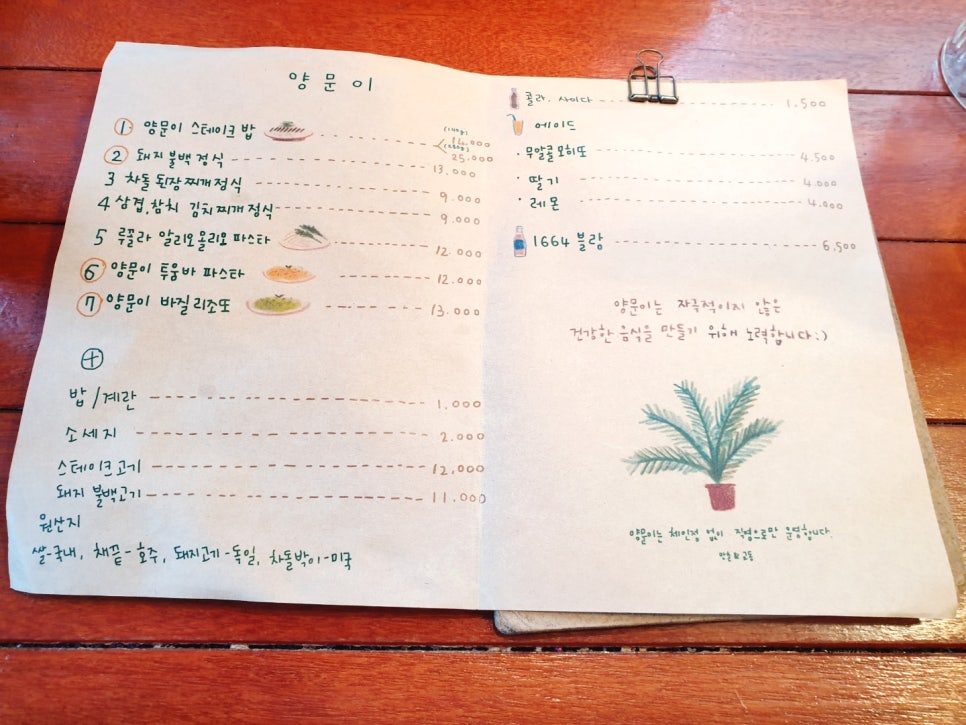 양문이
① 양문이 스테이크 밥 (140g) 14.000
(280g) 25.000
② 돼지 불백 정식 13.000
3 차돌 된장찌개 정식 9.000
4 삼겹, 참치 김치찌개 정식 9.000
5 루꼴라 알리오올리오 파스타 12.000
⑥ 양문이 투움바 파스타 12.000
⑦ 양문이 바질 리소또 13.000
⊕
밥/계란 1.000
소세지 2.000
스테이크고기 12.000
돼지 불백고기 11.000
원산지
쌀-국내, 채끝-호주, 돼지고기-독일, 차돌박이-미국
콜라, 사이다 1.500
에이드
· 무알콜 모히또 4.500
· 딸기 4.000
· 레몬 4.000
1664 블랑 6.500
양문이는 자극적이지 않은
건강한 음식을 만들기 위해 노력합니다:)
양문이는 체인점 없이 직영으로만 운영합니다.